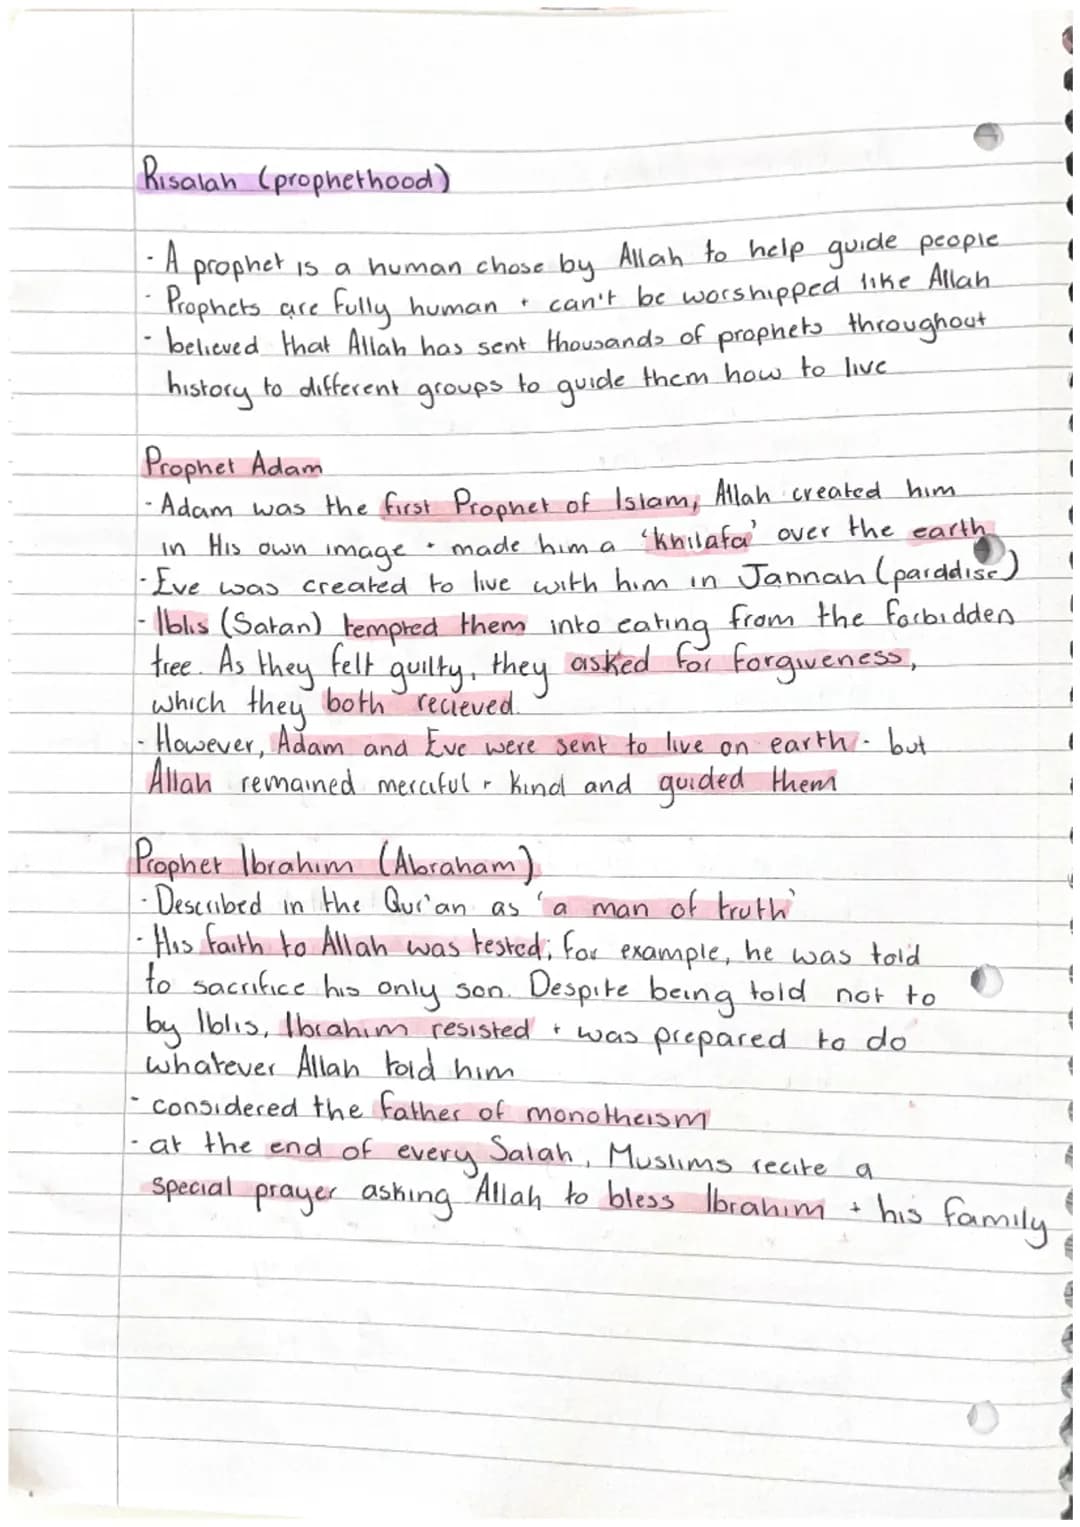 Risalah (prophethood)
- A prophet is a human chose by Allah to help guide people
- Prophets are fully human + can't be worshipped like Allah
- believed that Allah has sent thousands of prophets throughout
history to different groups to guide them how to live
Prophet Adam
- Adam was the first Prophet of Islam, Allah created him
in His own image + made him a 'Khilafa' over the earth
- Eve was created to live with him in Jannah (parddise)
- Iblis (Satan) tempted them into eating from the forbidden
tree. As they felt guilty, they asked for forgiveness,
which they both recieved.
- However, Adam and Eve were sent to live on earth - but
Allah remained merciful + kind and guided them
Prophet Ibrahim (Abraham)
- Described in the Qur'an as 'a man of truth'
- His faith to Allah was tested; for example, he was told
to sacrifice his only son. Despite being told not to
by Iblis, Ibrahim resisted + was prepared to do
whatever Allah told him
- considered the father of monotheism
- at the end of every Salah, Muslims recite a
special prayer asking Allah to bless Ibrahim + his family